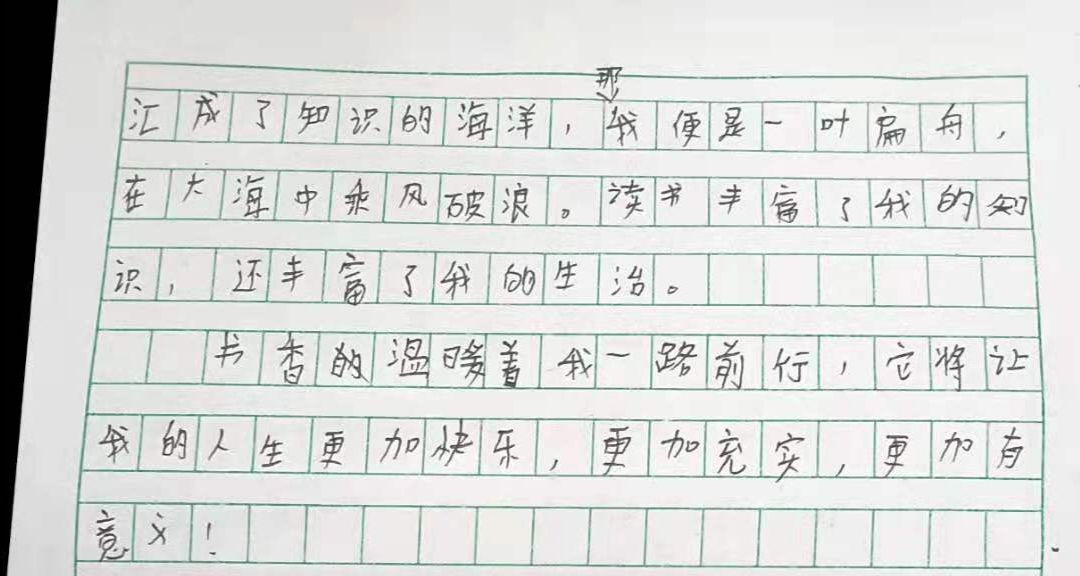 汇成了知识的海洋，那我便是一叶扁舟，
在大海中乘风破浪。读书丰富了我的知
识，还丰富了我的生活。
书香的温暖着我一路前行，它将让
我的人生更加快乐，更加充实，更加有
意义！